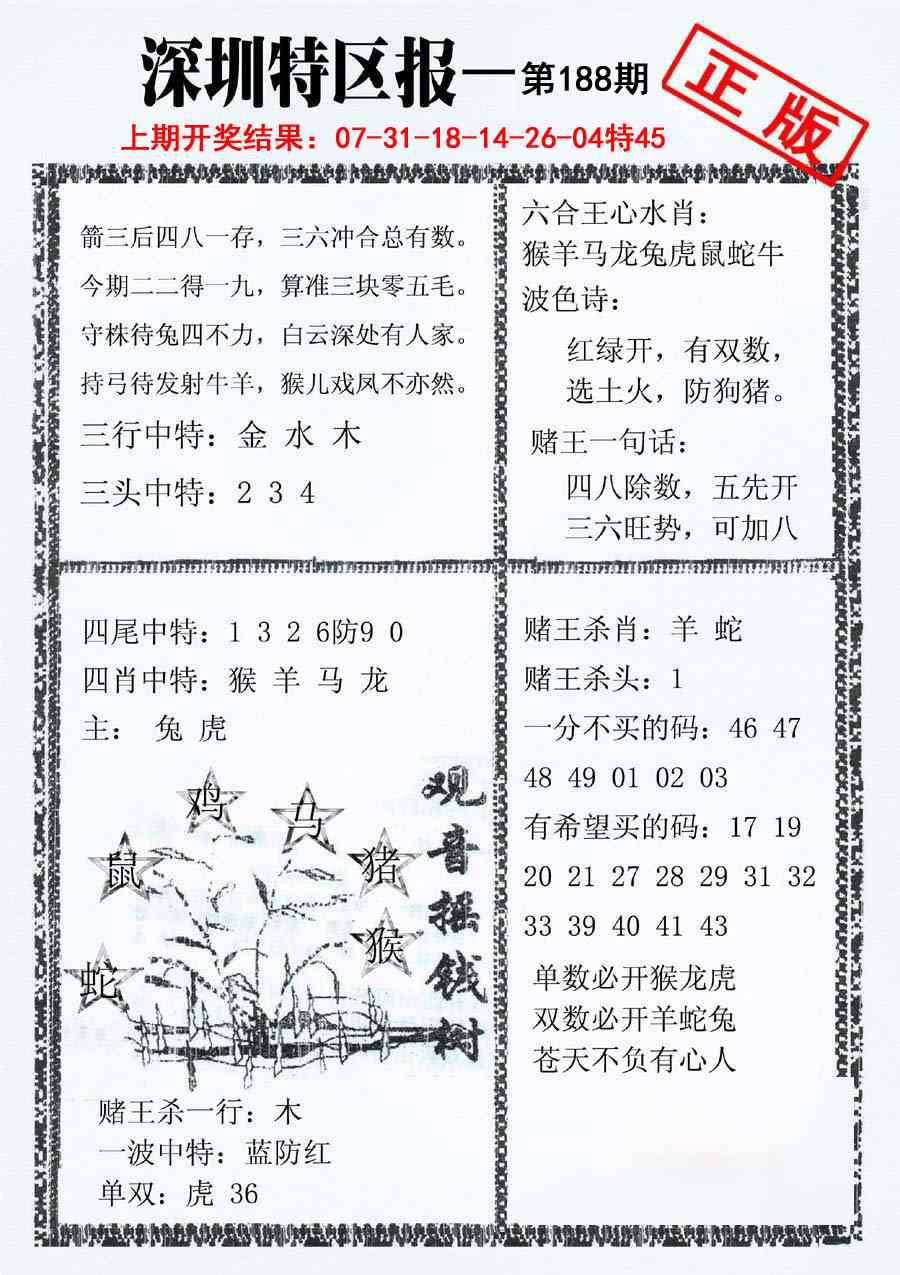 深圳特区报—第188期
正版
上期开奖结果：07-31-18-14-26-04特45
箭三后四八一存，三六冲合总有数。
今期二二得一九，算准三块零五毛。
守株待兔四不力，白云深处有人家。
持弓待发射牛羊，猴儿戏凤不亦然。
三行中特：金 水 木
三头中特：2 3 4
六合王心水肖：
猴羊马龙兔虎鼠蛇牛
波色诗：
红绿开，有双数，
选土火，防狗猪。
赌王一句话：
四八除数，五先开
三六旺势，可加八
四尾中特：1 3 2 6防9 0
四肖中特：猴 羊 马 龙
主： 兔 虎
鸡
马
鼠
猪
猴
蛇
观音摇钱树
赌王杀一行：木
一波中特：蓝防红
单双：虎 36
赌王杀肖：羊 蛇
赌王杀头：1
一分不买的码：46 47
48 49 01 02 03
有希望买的码：17 19
20 21 27 28 29 31 32
33 39 40 41 43
单数必开猴龙虎
双数必开羊蛇兔
苍天不负有心人